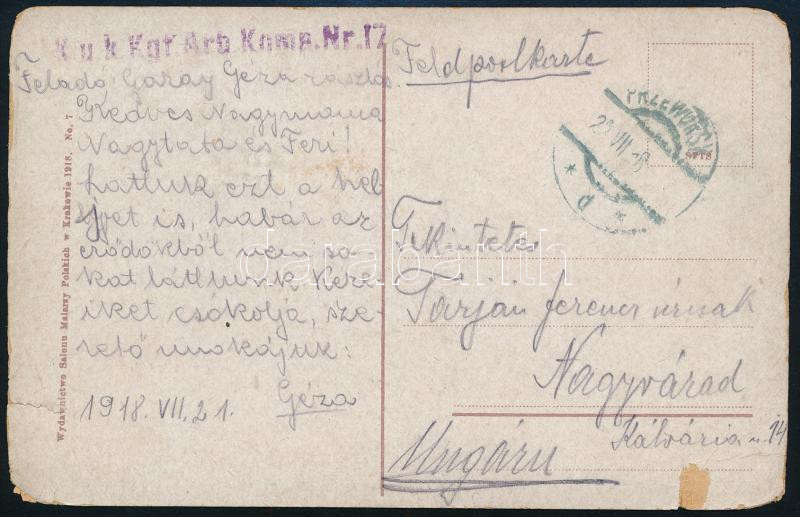 K.u.k. Kgf. Arb. Komp. Nr. 17
Feladó: Garay Géza
Kedves Nagymama
Nagytata és Feri!
Láttuk ezt a hel
yet is, habár az
erődökből nem so-
kat láttunk. Keze-
iket csókolja, sze-
rető unokájuk:
Géza
1918. VII. 21.
Wydawnictwo Salonu Malarzy Polskich w Krakowie 1918. No. 7
Feldpostkarte
PRZEWORSK
SPTS
Tekintetes
Tarján Ferenc úrnak
Nagyvárad
Kálvária u. 14
Ungarn
darabanth